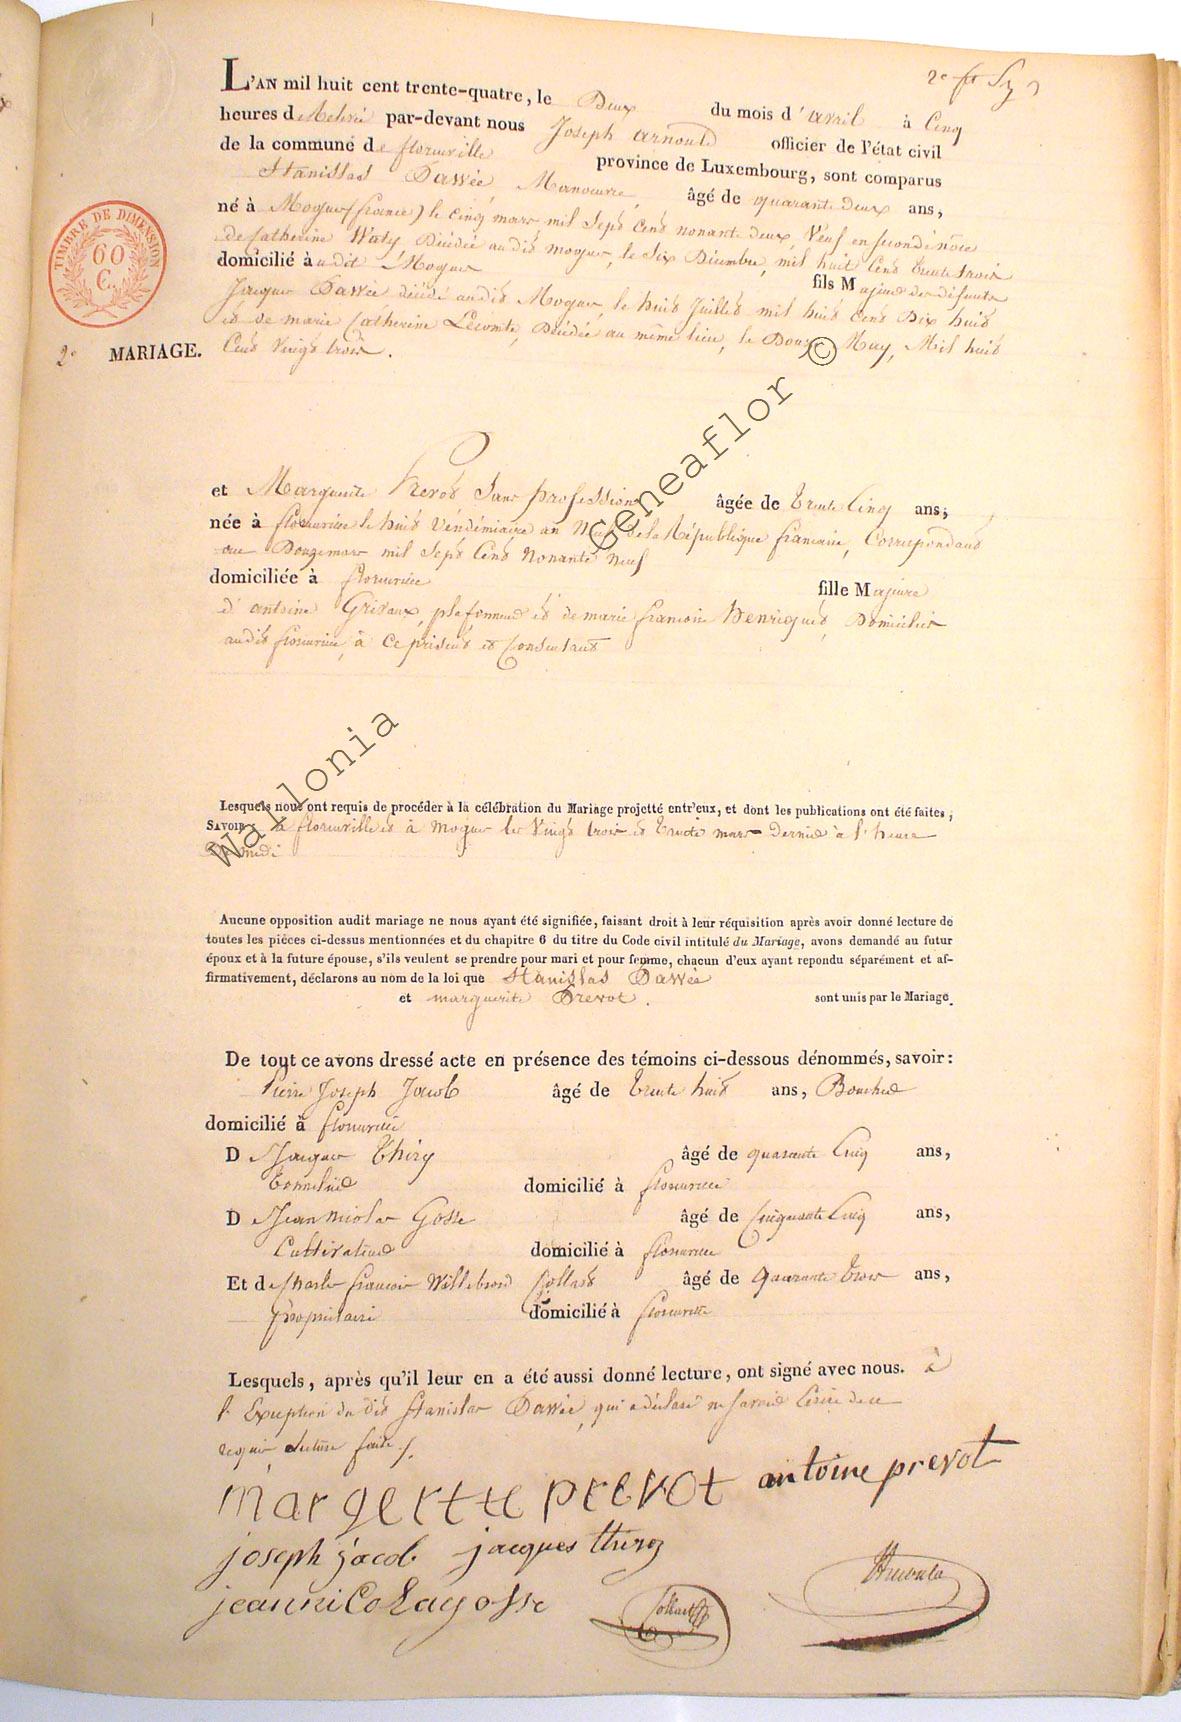 2e
L'AN mil huit cent trente-quatre, le Deux du mois d'avril à Cinq
heures de Relevée par-devant nous Joseph arnould officier de l'état civil
de la commune de florenville province de Luxembourg, sont comparus
Stanislas Dawée Manoeuvre, âgé de quarante deux ans,
né à Mogues (france) le cinq mars mil Sept Cent nonante deux, Veuf en seconde nôce
de Catherine Waty Décédée audit mogues, le Six Décembre, mil huit Cent trente trois
domicilié audit Mogues fils Majeur des défunts
Jacques Dawée décédé audit Mogues, le huit Juillet mil huit Cent Dix huit
et de marie Catherine Lecomte, Décédée au même lieu, le Douze May, Mil huit
Cent Vingt trois.
TIMBRE DE DIMENSION
60
C.
2e MARIAGE.
et Marguerite Prevot Sans profession âgée de trente Cinq ans,
née à florenville le huit Vendémiaire an Neuf de la République française, Correspondant
au Douze mars mil Sept Cent nonante Neuf
domiciliée à florenville fille Majeure
d'antoine plafonneur et de marie françoise Henriquet, Domiciliés
audit florenville, à Ce présents et Consentants
Lesquels nous ont requis de procéder à la célébration du Mariage projetté entr'eux, et dont les publications ont été faites,
SAVOIR: à florenville et à mogues les Vingt trois et trente mars Dernier à l'heure
De midi
Aucune opposition audit mariage ne nous ayant été signifiée, faisant droit à leur réquisition après avoir donné lecture de
toutes les pièces ci-dessus mentionnées et du chapitre 6 du titre du Code civil intitulé du Mariage, avons demandé au futur
époux et à la future épouse, s'ils veulent se prendre pour mari et pour femme, chacun d'eux ayant repondu séparément et af-
firmativement, déclarons au nom de la loi que Stanislas Dawée
et marguerite Prevot. sont unis par le Mariage.
De tout ce avons dressé acte en présence des témoins ci-dessous dénommés, savoir:
Pierre Joseph Jacob âgé de trente huit ans, Boucher
domicilié à florenville
De Jacques Thiry âgé de quarante Cinq ans,
Tonnelier domicilié à florenville
De Jean nicolas Gosse âgé de Cinquante Cinq ans,
Cultivateur domicilié à florenville
Et de Charles françois Willebrord Collard âgé de quarante trois ans,
Propriétaire domicilié à florenville
Lesquels, après qu'il leur en a été aussi donné lecture, ont signé avec nous. à
l'Exception du dit Stanislas Dawée, qui a déclaré ne Savoir Ecrire de ce
requis, Lecture faite.
margertte prevot antoine prevot
joseph jacob jacques thirez
jeannicolas gosse Collard
Wallonia Geneaflor ©